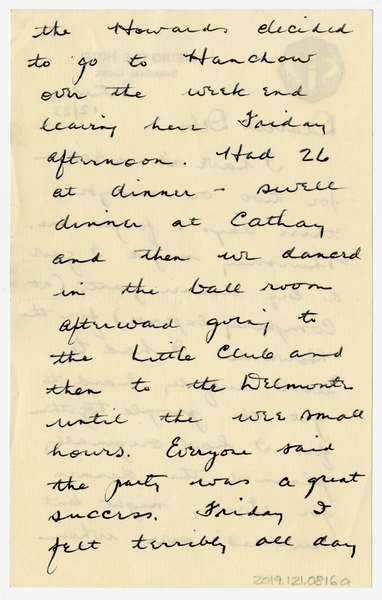 the Howards decided
to go to Hanchow
over the week end
leaving here Friday
afternoon. Had 26
at dinner – swell
dinner at Cathay
and then we danced
in the ball room
afterward going to
the Little Club and
then to the Delmonte
until the wee small
hours. Everyone said
the party was a great
success. Friday I
felt terribly all day
2019.121.0816a